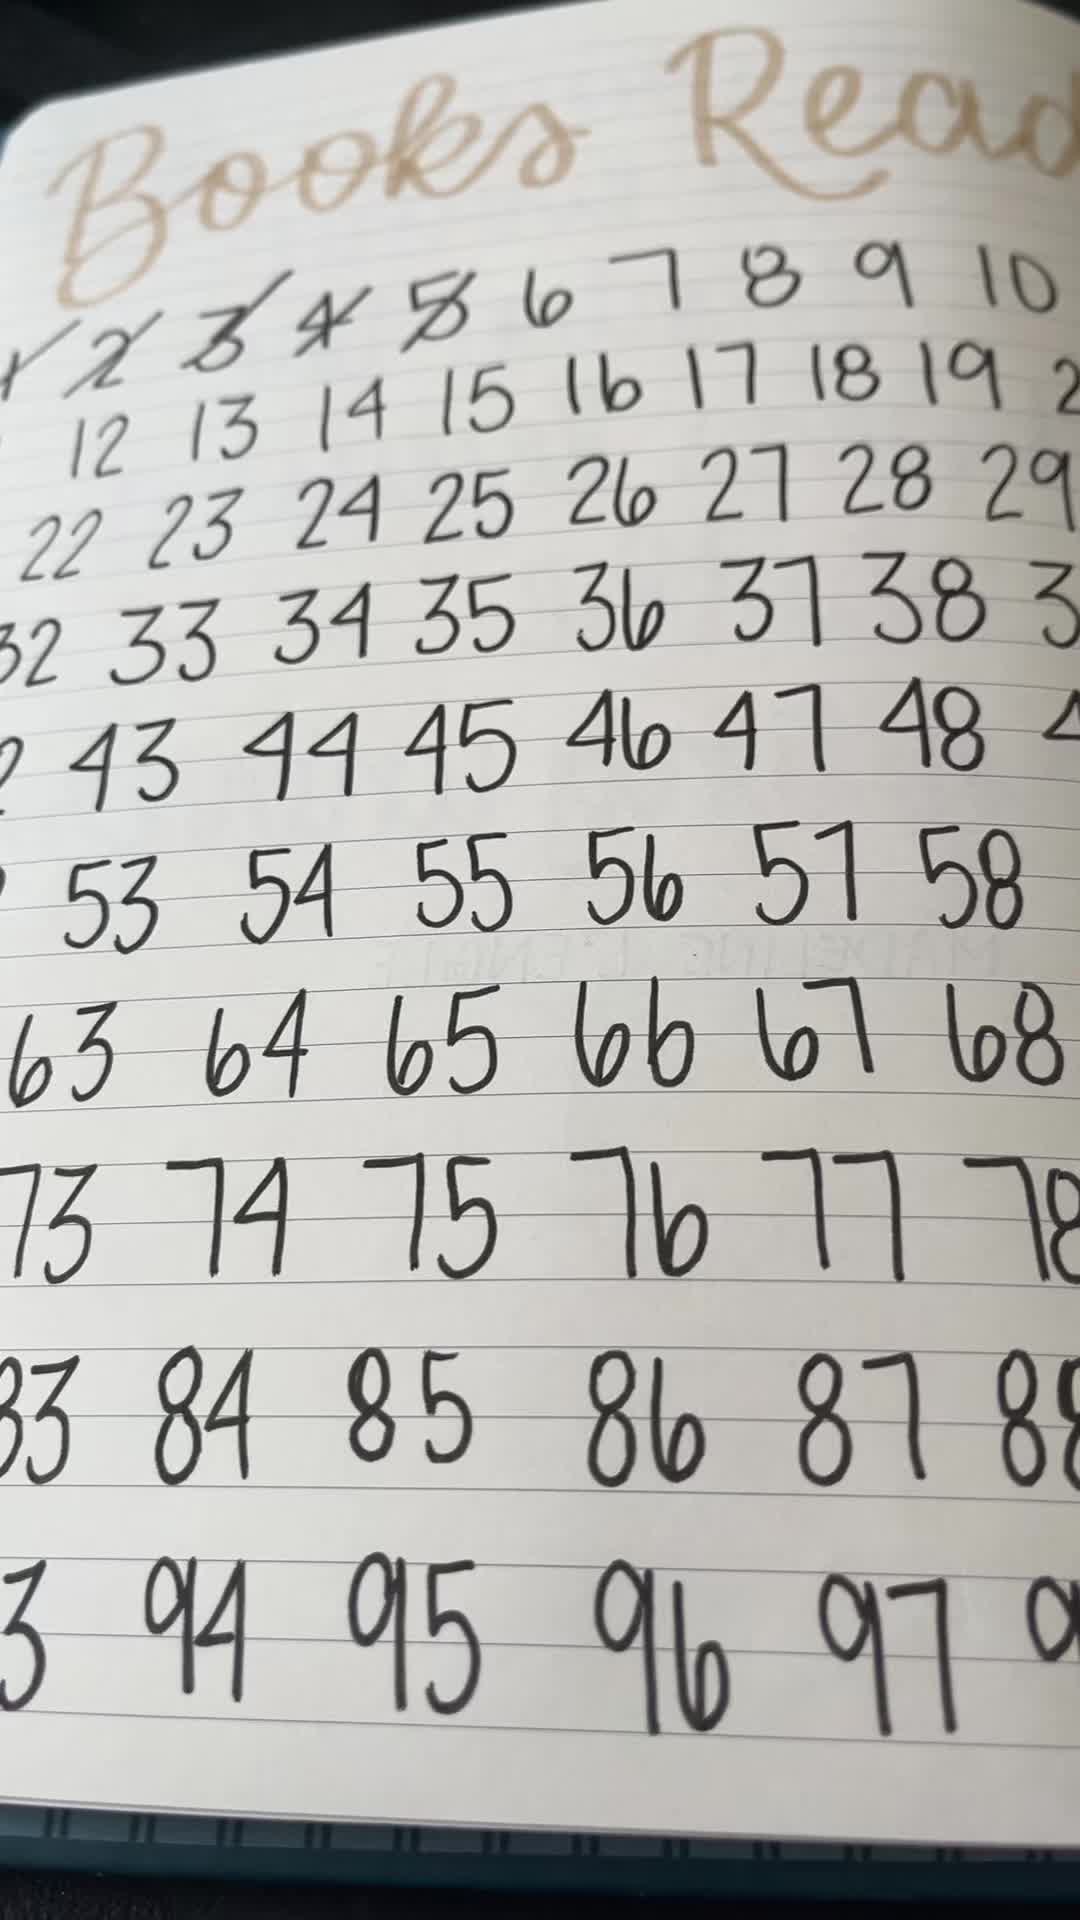 Books Read
1 2 3 4 5 6 7 8 9 10
12 13 14 15 16 17 18 19 2
22 23 24 25 26 27 28 29
32 33 34 35 36 37 38 3
2 43 44 45 46 47 48 4
53 54 55 56 57 58
63 64 65 66 67 68
73 74 75 76 77 78
83 84 85 86 87 88
3 94 95 96 97 9